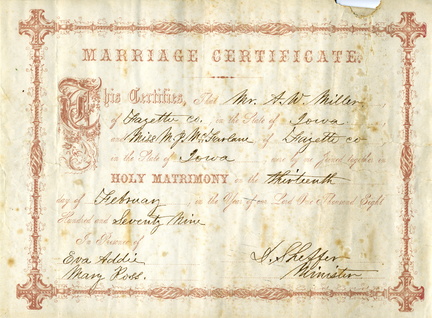 MARRIAGE CERTIFICATE.
This Certifies, That Mr. A. W. Miller
of Fayette co. in the State of Iowa
and Miss M. J. McFarlane of Fayette co
in the State of Iowa were by me joined together in
HOLY MATRIMONY on the thirteenth
day of February in the Year of our Lord One Thousand Eight
Hundred and Seventy Nine
In Presence of
Eva Addie
Mary Ross.
D. Sheffer
Minister